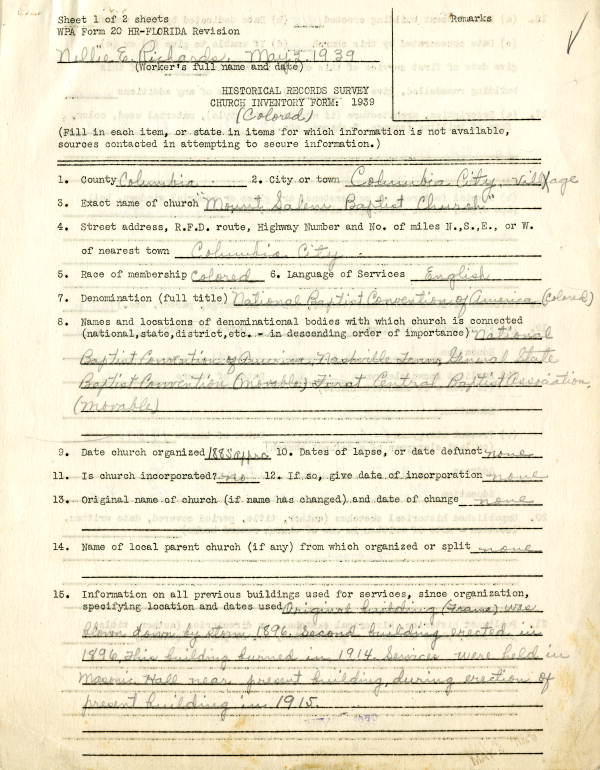 Sheet 1 of 2 sheets
Remarks
WPA Form 20 HR-FLORIDA Revision
Nellie E. Richards, May 2, 1939
(Worker's full name and date)
HISTORICAL RECORDS SURVEY
CHURCH INVENTORY FORM: 1939
(Colored)
(Fill in each item, or state in items for which information is not available,
sources contacted in attempting to secure information.)
1. County Columbia 2. City or town Columbia City - Village
3. Exact name of church "Mount Salem Baptist Church"
4. Street address, R.F.D. route, Highway Number and No. of miles N.,S.,E., or W.
of nearest town Columbia City.
5. Race of membership Colored 6. Language of Services English
7. Denomination (full title) National Baptist Convention of America (Colored)
8. Names and locations of denominational bodies with which church is connected
(national,state,district,etc. - in descending order of importance) National
Baptist Convention of America, Nashville Tenn, General State
Baptist Convention (Movable) First Central Baptist Association,
(Movable)
9. Date church organized 1885 appro 10. Dates of lapse, or date defunct none
11. Is church incorporated? no 12. If so, give date of incorporation none
13. Original name of church (if name has changed) and date of change none
14. Name of local parent church (if any) from which organized or split none
15. Information on all previous buildings used for services, since organization,
specifying location and dates used Original building (Frame) was
blown down by storm 1896. Second building erected in
1896, This building burned in 1914. Services were held in
Masonic Hall near present building, during erection of
present building in 1915.